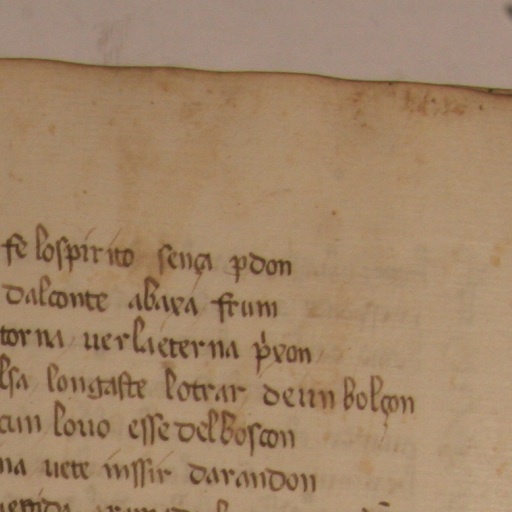 fe lospirito sença pdon
dalconte abaxa frum
torna uerla eterna pxon
lsa longaste lotrar deun bolçon
cun louo esse del boscon
na uete inssir darandon